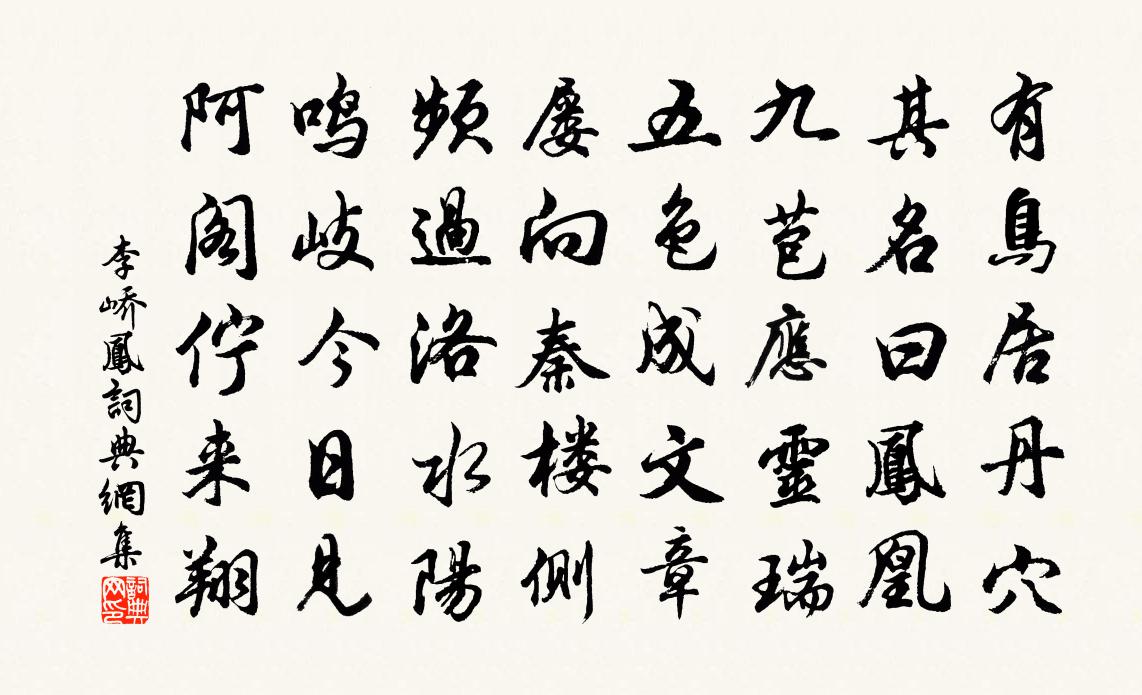 有鳥居丹穴
其名曰鳳凰
九苞應靈瑞
五色成文章
屡向秦楼側
頻過洛水陽
鳴岐今日見
阿阁佇来翔
李嶠鳳詞典網集
詞典网印